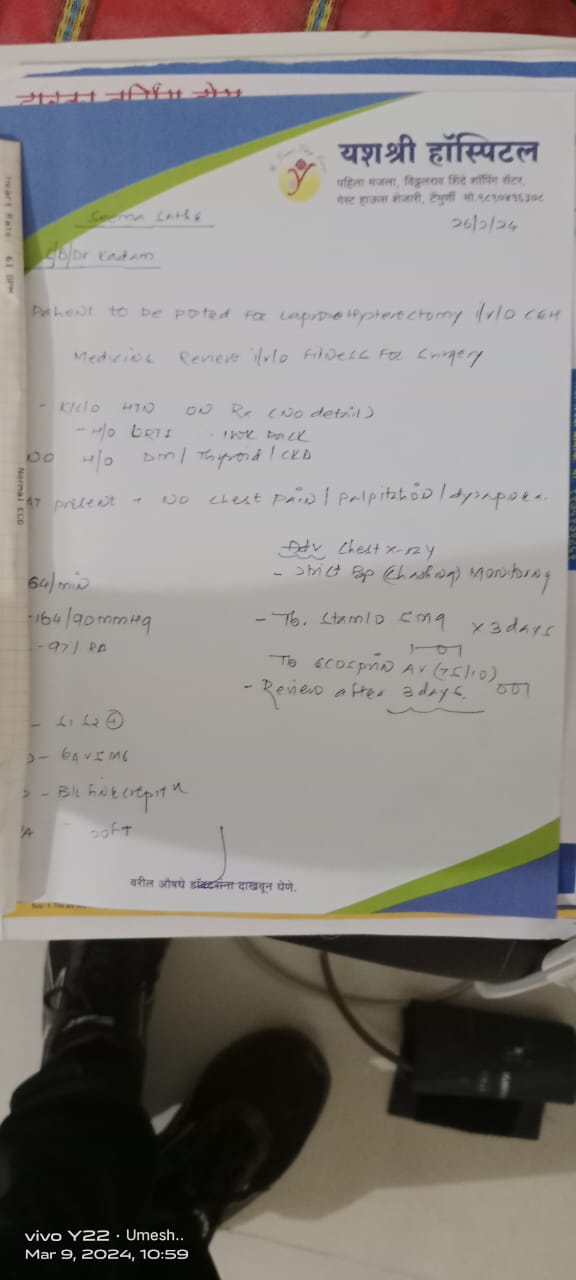 यशश्री हॉस्पिटल
पहिला मजला, विठ्ठलराव शिंदे शॉपिंग सेंटर,
गेस्ट हाऊस शेजारी, टेंभुर्णी
26/2/24
S/B/Dr Kadam
Patient to be posted For Hysterectomy i/v/o
Medicine Review i/v/o Fitness For Surgery
- K/C/O HTN ON Rx (No detail)
- H/O URTI 1WK BACK
NO H/O DM/ Thyroid/ CKD
AT present → No chest pain/ palpitation/ dyspnoea.
Adv Chest x-ray
- Strict Bp (Charting) Monitoring
64/min
164/90mmHg
- 97% RA
- Tb. Stamlo 5mg x 3 days
Tb ecosprin AV (75/10)
- Review after 3 days.
- S1 S2 +
- BIL Fine crepit
soft
वरील औषधे डॉक्टरांना दाखवून घेणे.
Heart Rate 61 BPM
Normal ECG
vivo Y22 · Umesh..
Mar 9, 2024, 10:59